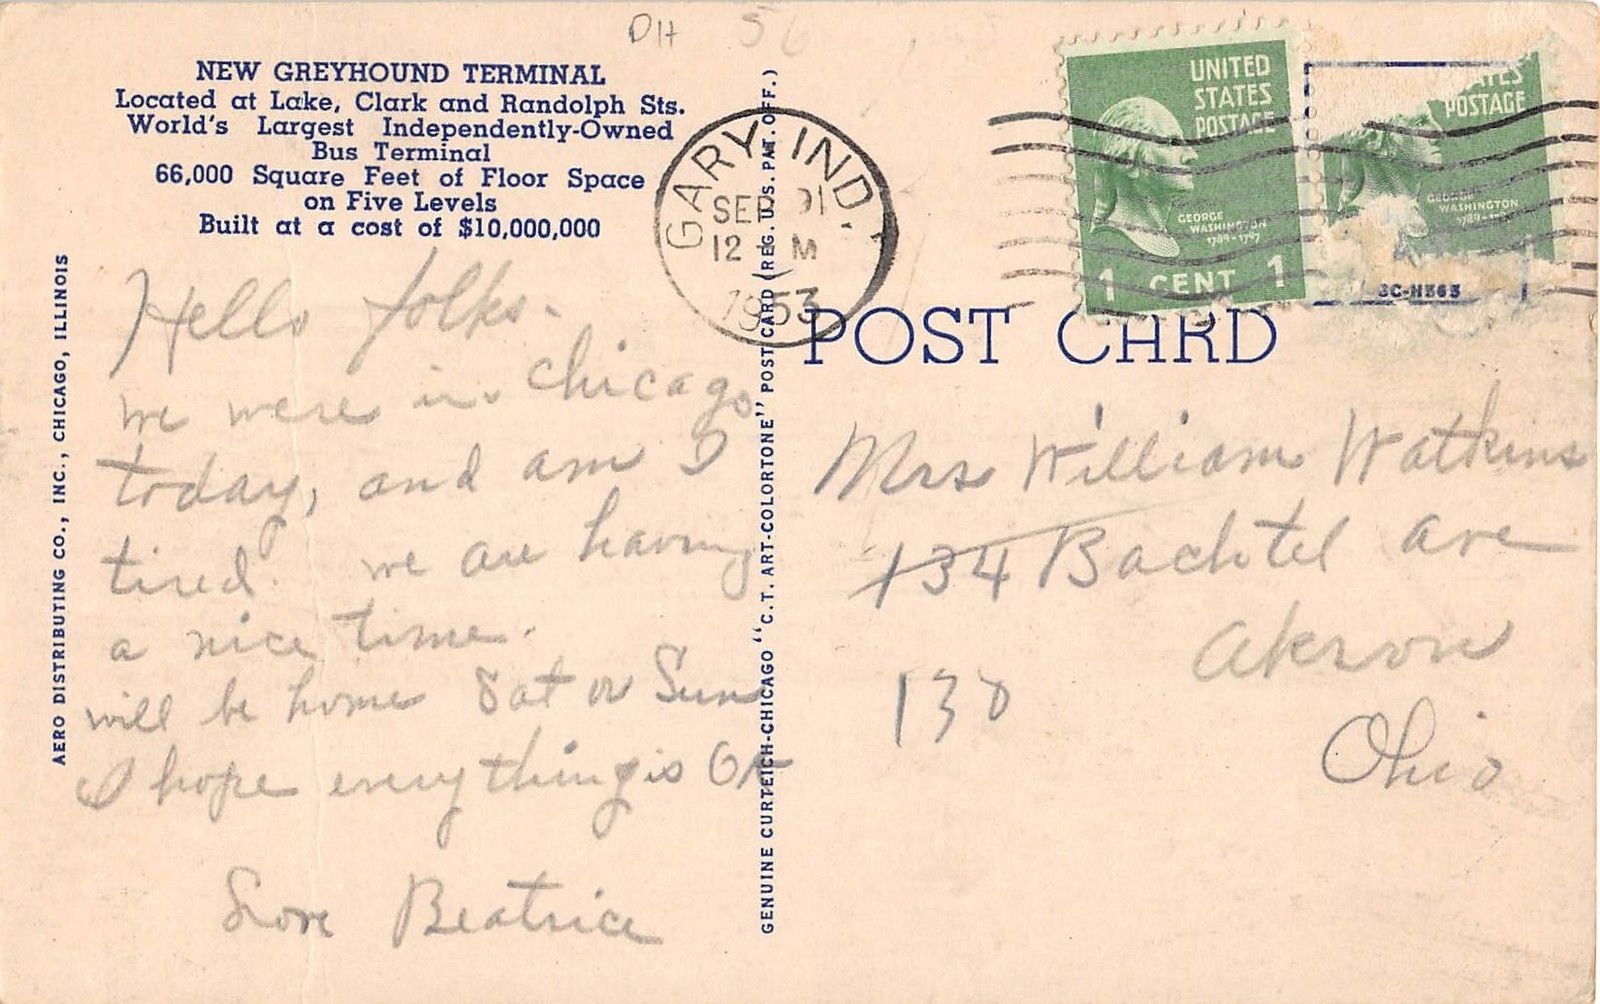 DH 56
NEW GREYHOUND TERMINAL
Located at Lake, Clark and Randolph Sts.
World's Largest Independently-Owned
Bus Terminal
66,000 Square Feet of Floor Space
on Five Levels
Built at a cost of $10,000,000
AERO DISTRIBUTING CO., INC., CHICAGO, ILLINOIS
Hello folks.
we were in chicago
today, and am I
tired. we are having
a nice time.
will be home Sat or Sun
I hope everything is OK
Love Beatrice
GENUINE CURTEICH-CHICAGO "C.T. ART-COLORTONE" POST CARD (REG. U.S. PAT. OFF.)
GARY, IND.
SEP
12 M
1953
UNITED
STATES
POSTAGE
GEORGE
WASHINGTON
1789-1797
1 CENT 1
ATES
POSTAGE
GEORGE
WASHINGTON
3C-H363
POST CARD
Mrs William Watkins
134 Bachtel ave
akron
138
Ohio